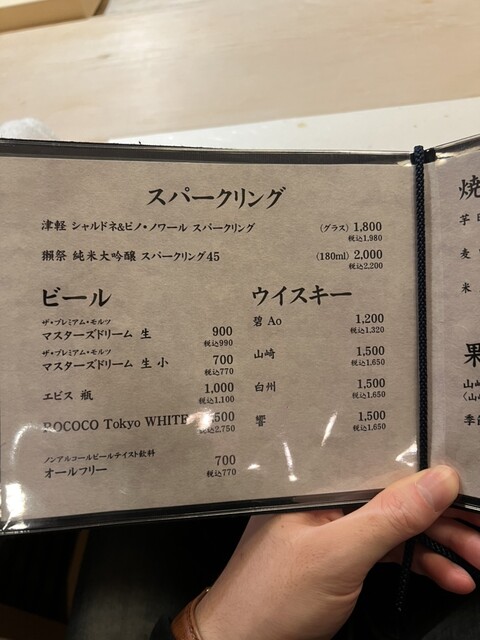 スパークリング
津軽 シャルドネ&ピノ・ノワール スパークリング (グラス) 1,800
税込1,980
獺祭 純米大吟醸 スパークリング45 (180ml) 2,000
税込2,200
ビール
ザ・プレミアム・モルツ
マスターズドリーム 生 900
税込990
ザ・プレミアム・モルツ
マスターズドリーム 生 小 700
税込770
エビス 瓶 1,000
税込1,100
ROCOCO Tokyo WHITE ,500
税込2,750
ノンアルコールビールテイスト飲料
オールフリー 700
税込770
ウイスキー
碧 Ao 1,200
税込1,320
山崎 1,500
税込1,650
白州 1,500
税込1,650
響 1,500
税込1,650
焼
芋
麦
米
果
山崎
季節